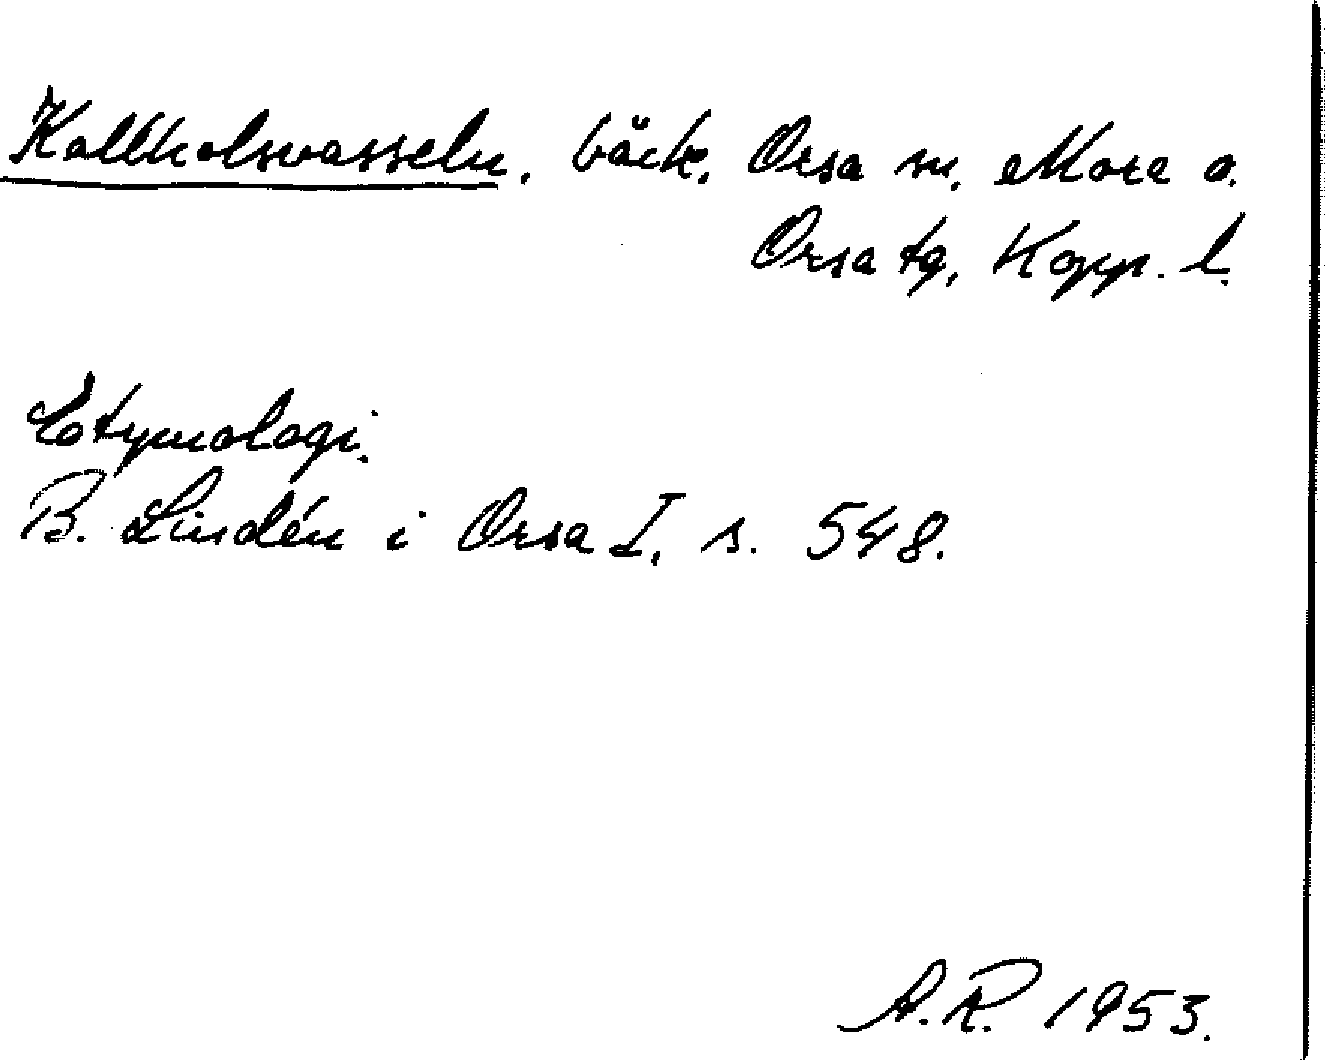 Kallholsvasseln, bäck, Orsa sn, Mora o.
Orsa tg, Kopp. l.
Etymologi.
B. Lindén i Orsa I, s. 548.
A.R. 1953.